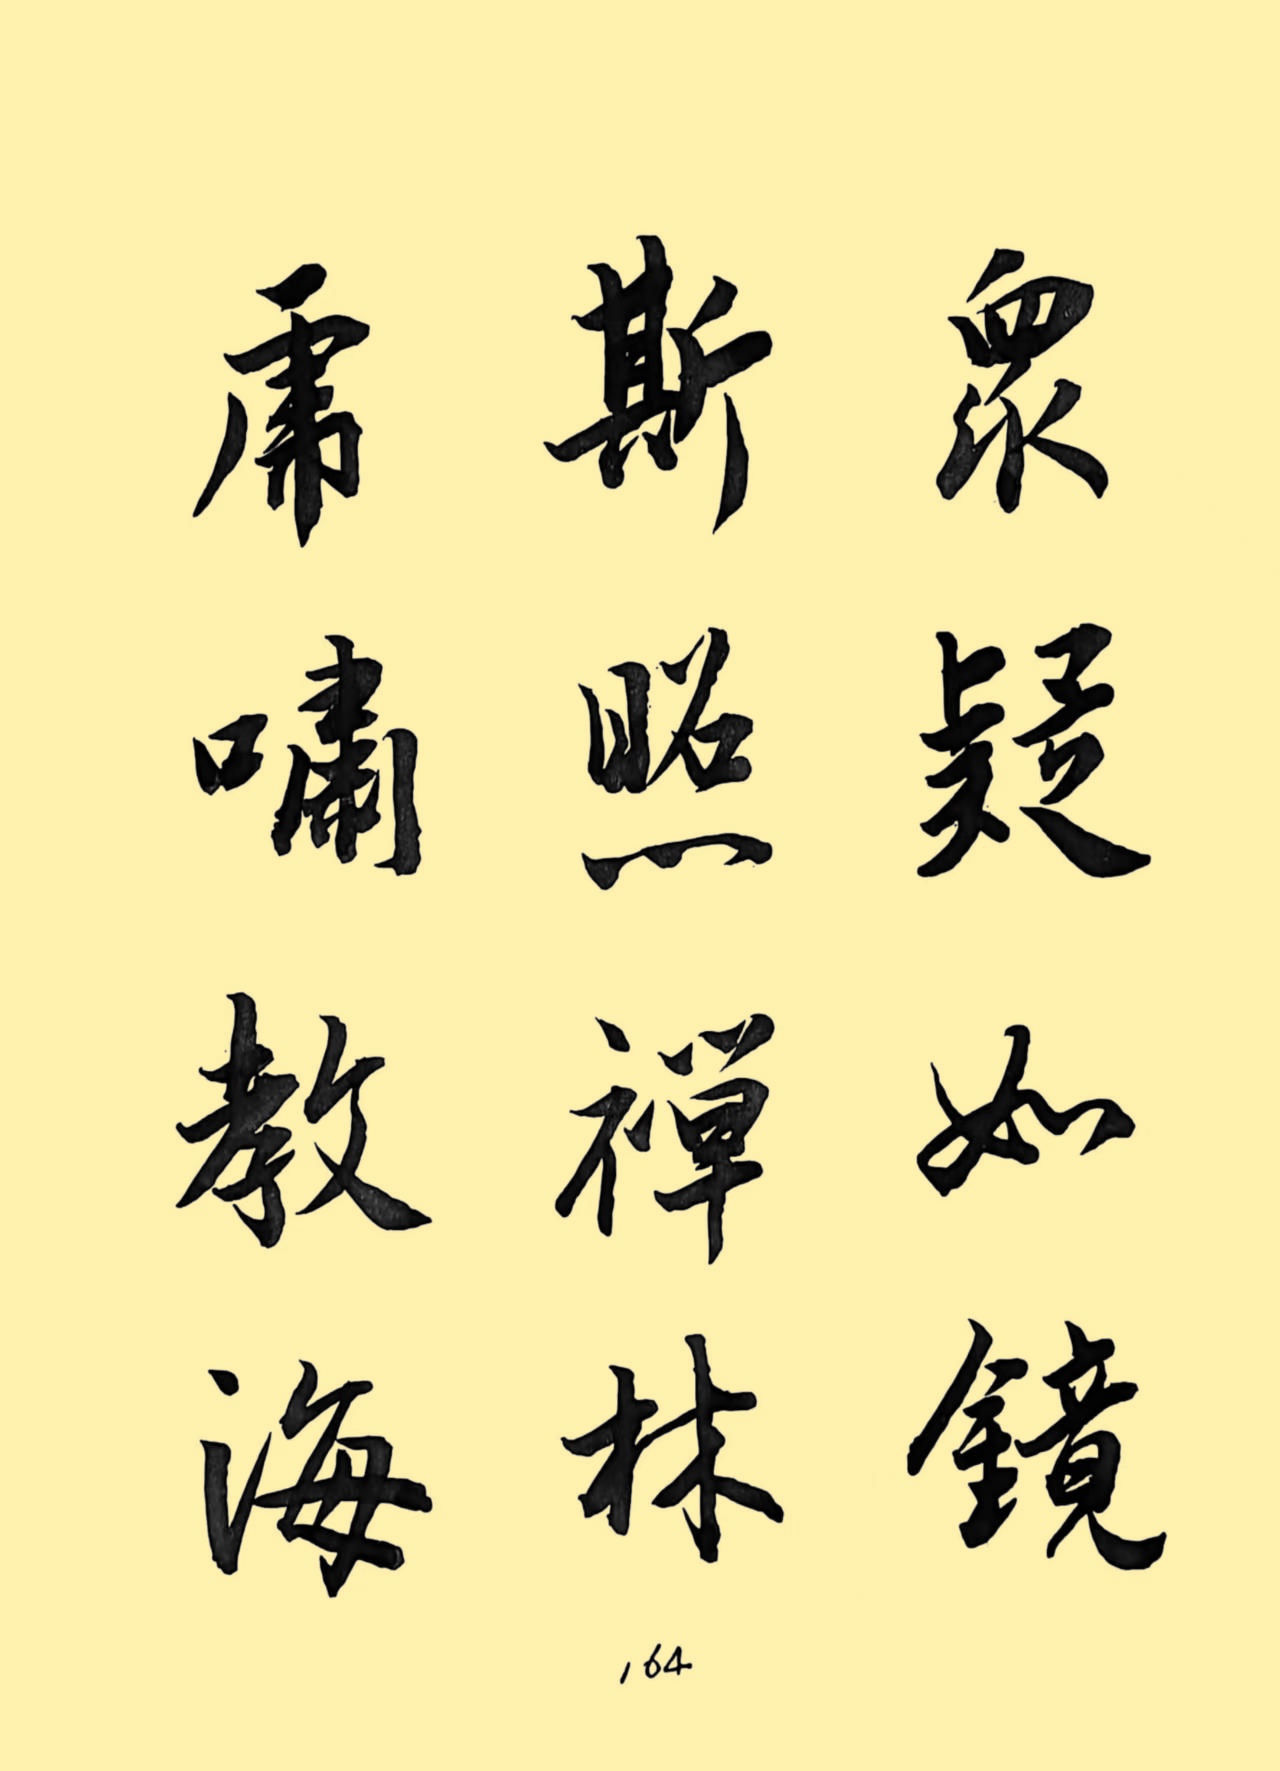 眾疑如鏡
斯照禪林
虎嘯教海
164